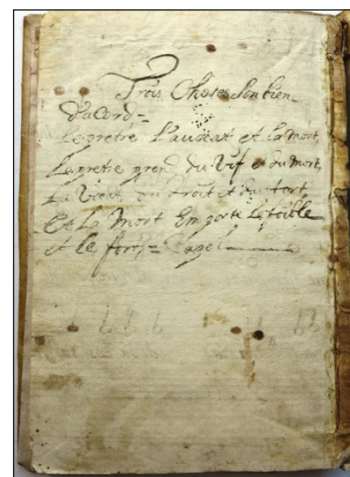 Trois Choses Son bien
D'acord =
Le pretre L'avocat et La mort
Le pretre prend du Vif et du mort
La Vocat du droit et du tort
Et La Mort Emporte Le foible
et le fort =